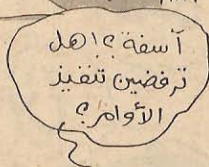 آسفة؟ اهل
ترفضين تنفيذ
الأوامر؟